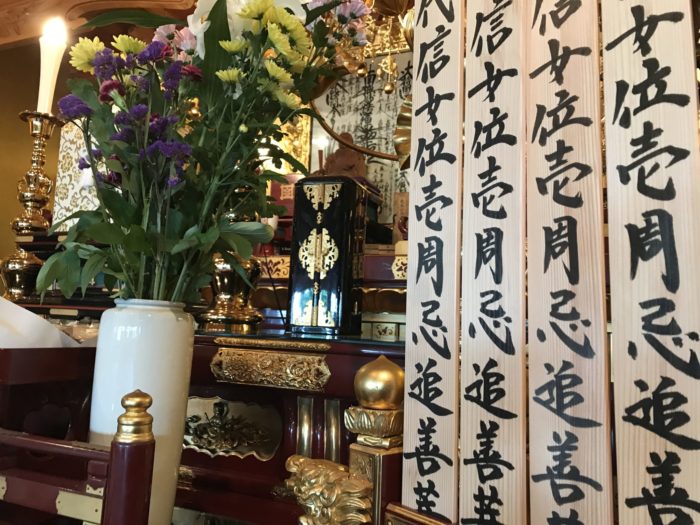 女位壱周忌追善菩
信女位壱周忌追善菩
信女位壱周忌追善菩
代信女位壱周忌追善菩